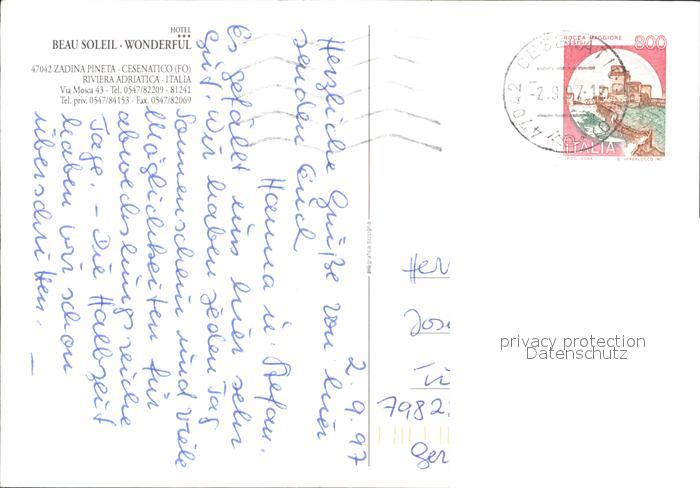 HOTEL
***
BEAU SOLEIL - WONDERFUL
47042 ZADINA PINETA - CESENATICO (FO)
RIVIERA ADRIATICA - ITALIA
Via Mosca 43 - Tel. 0547/82209 - 81241
Tel. priv. 0547/84153 - Fax. 0547/82069
2.9.97
Herzliche Grüße von hier
senden Euch
Hanna u. Stefan.
Es gefällt uns hier sehr
gut. Wir haben jeden Tag
Sonnenschein und viele
Möglichkeiten für
abwechslungsreiche
Tage. - Die Halbzeit
haben wir schon
überschritten. -
ROCCA MAGGIORE
800
ITALIA
47042 CESENATICO
-2.9.97
Her
Jose
7982
Ger
privacy protection
Datenschutz